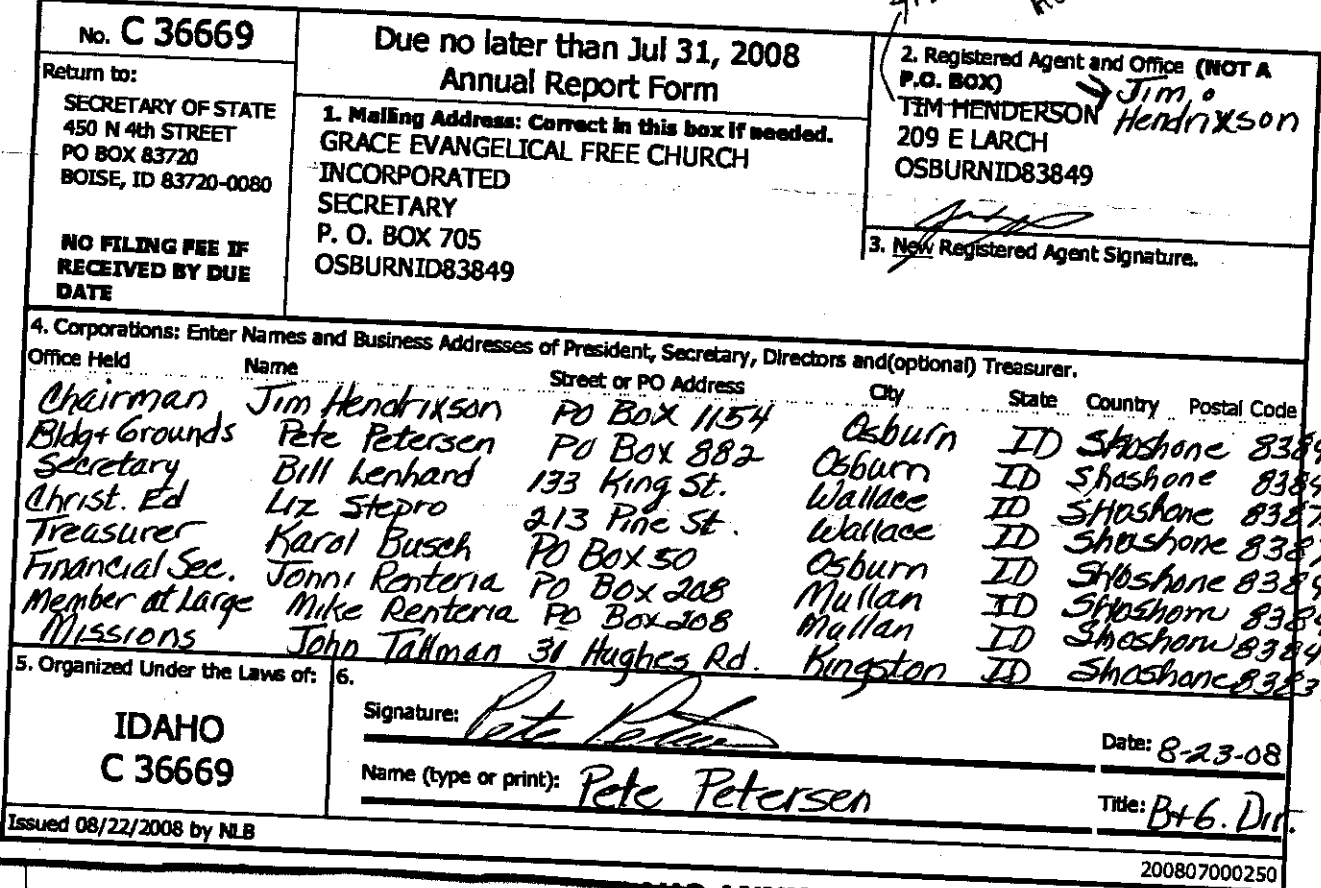 No. C 36669
Return to:
SECRETARY OF STATE
450 N 4th STREET
PO BOX 83720
BOISE, ID 83720-0080
NO FILING FEE IF
RECEIVED BY DUE
DATE
Due no later than Jul 31, 2008
Annual Report Form
1. Mailing Address: Correct in this box if needed.
GRACE EVANGELICAL FREE CHURCH
INCORPORATED
SECRETARY
P. O. BOX 705
OSBURNID83849
2. Registered Agent and Office (NOT A
P.O. BOX)
TIM HENDERSON Jim Hendrixson
209 E LARCH
OSBURNID83849
3. New Registered Agent Signature.
4. Corporations: Enter Names and Business Addresses of President, Secretary, Directors and(optional) Treasurer.
Office Held Name Street or PO Address City State Country Postal Code
Chairman Jim Hendrixson PO Box 1154 Osburn ID Shoshone 8384
Bldg+Grounds Pete Petersen PO Box 882 Osburn ID Shoshone 8384
Secretary Bill Lenhard 133 King St. Wallace ID Shoshone 8387
Christ. Ed Liz Stepro 213 Pine St. Wallace ID Shoshone 8387
Treasurer Karol Busch PO Box 50 Osburn ID Shoshone 8384
Financial Sec. Jonni Renteria PO Box 208 Mullan ID Shoshone 8384
Member at Large Mike Renteria PO Box 208 Mullan ID Shoshone 8384
Missions John Tallman 31 Hughes Rd. Kingston ID Shoshone 8383
5. Organized Under the Laws of:
IDAHO
C 36669
6.
Signature: Pete Petersen
Date: 8-23-08
Name (type or print): Pete Petersen
Title: B+G. Dir.
Issued 08/22/2008 by NLB
200807000250